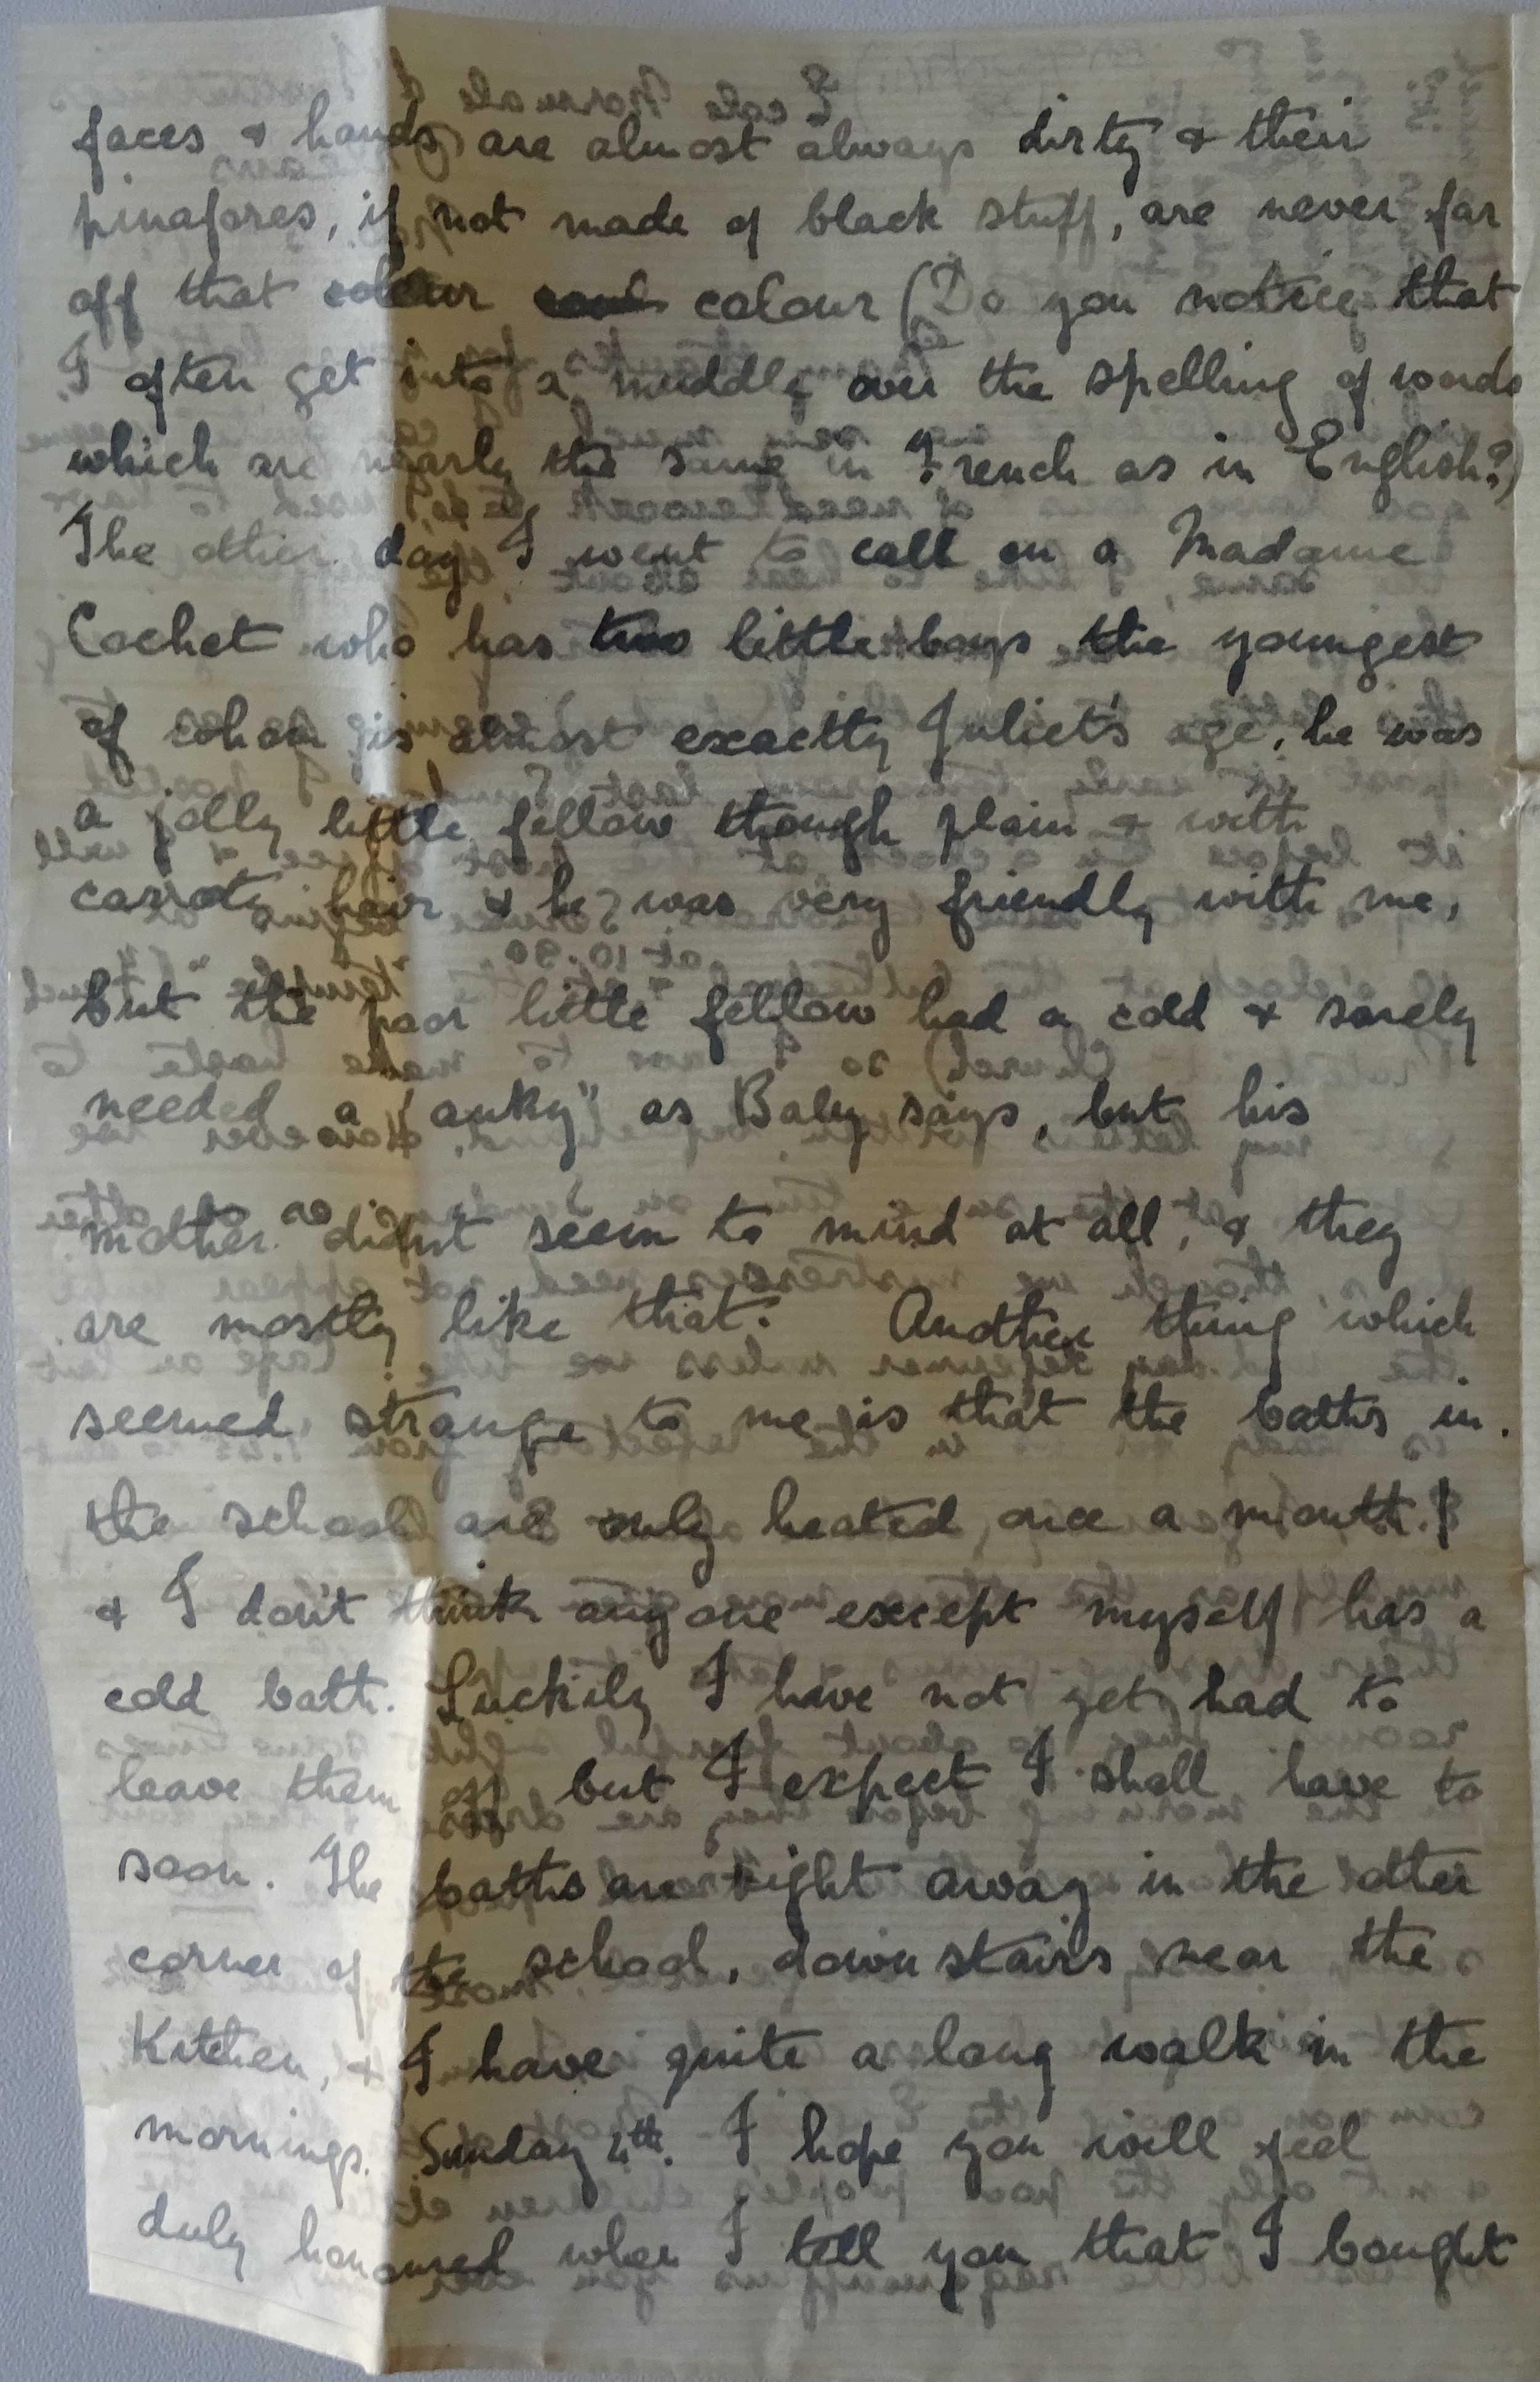 faces & hands are almost always dirty & their
pinafores, if not made of black stuff, are never far
off that colour colour (Do you notice that
I often get into a muddle over the spelling of words
which are nearly the same in French as in English?)
The other day I went to call on a Madame
Cochet who has two little boys the youngest
of whom is almost exactly Juliet's age, he was
a jolly little fellow though plain & with
carroty hair & he was very friendly with me,
but the poor little fellow had a cold & sorely
needed a "anky" as Baby says, but his
mother didn't seem to mind at all, & they
are mostly like that. Another thing which
seemed strange to me is that the baths in
the school are only heated once a month!
& I don't think anyone except myself has a
cold bath. Luckily I have not yet had to
leave them off but I expect I shall have to
soon. The baths are right away in the other
corner of the school, down stairs near the
Kitchen, & I have quite a long walk in the
mornings. Sunday 4th. I hope you will feel
duly honoured when I tell you that I bought